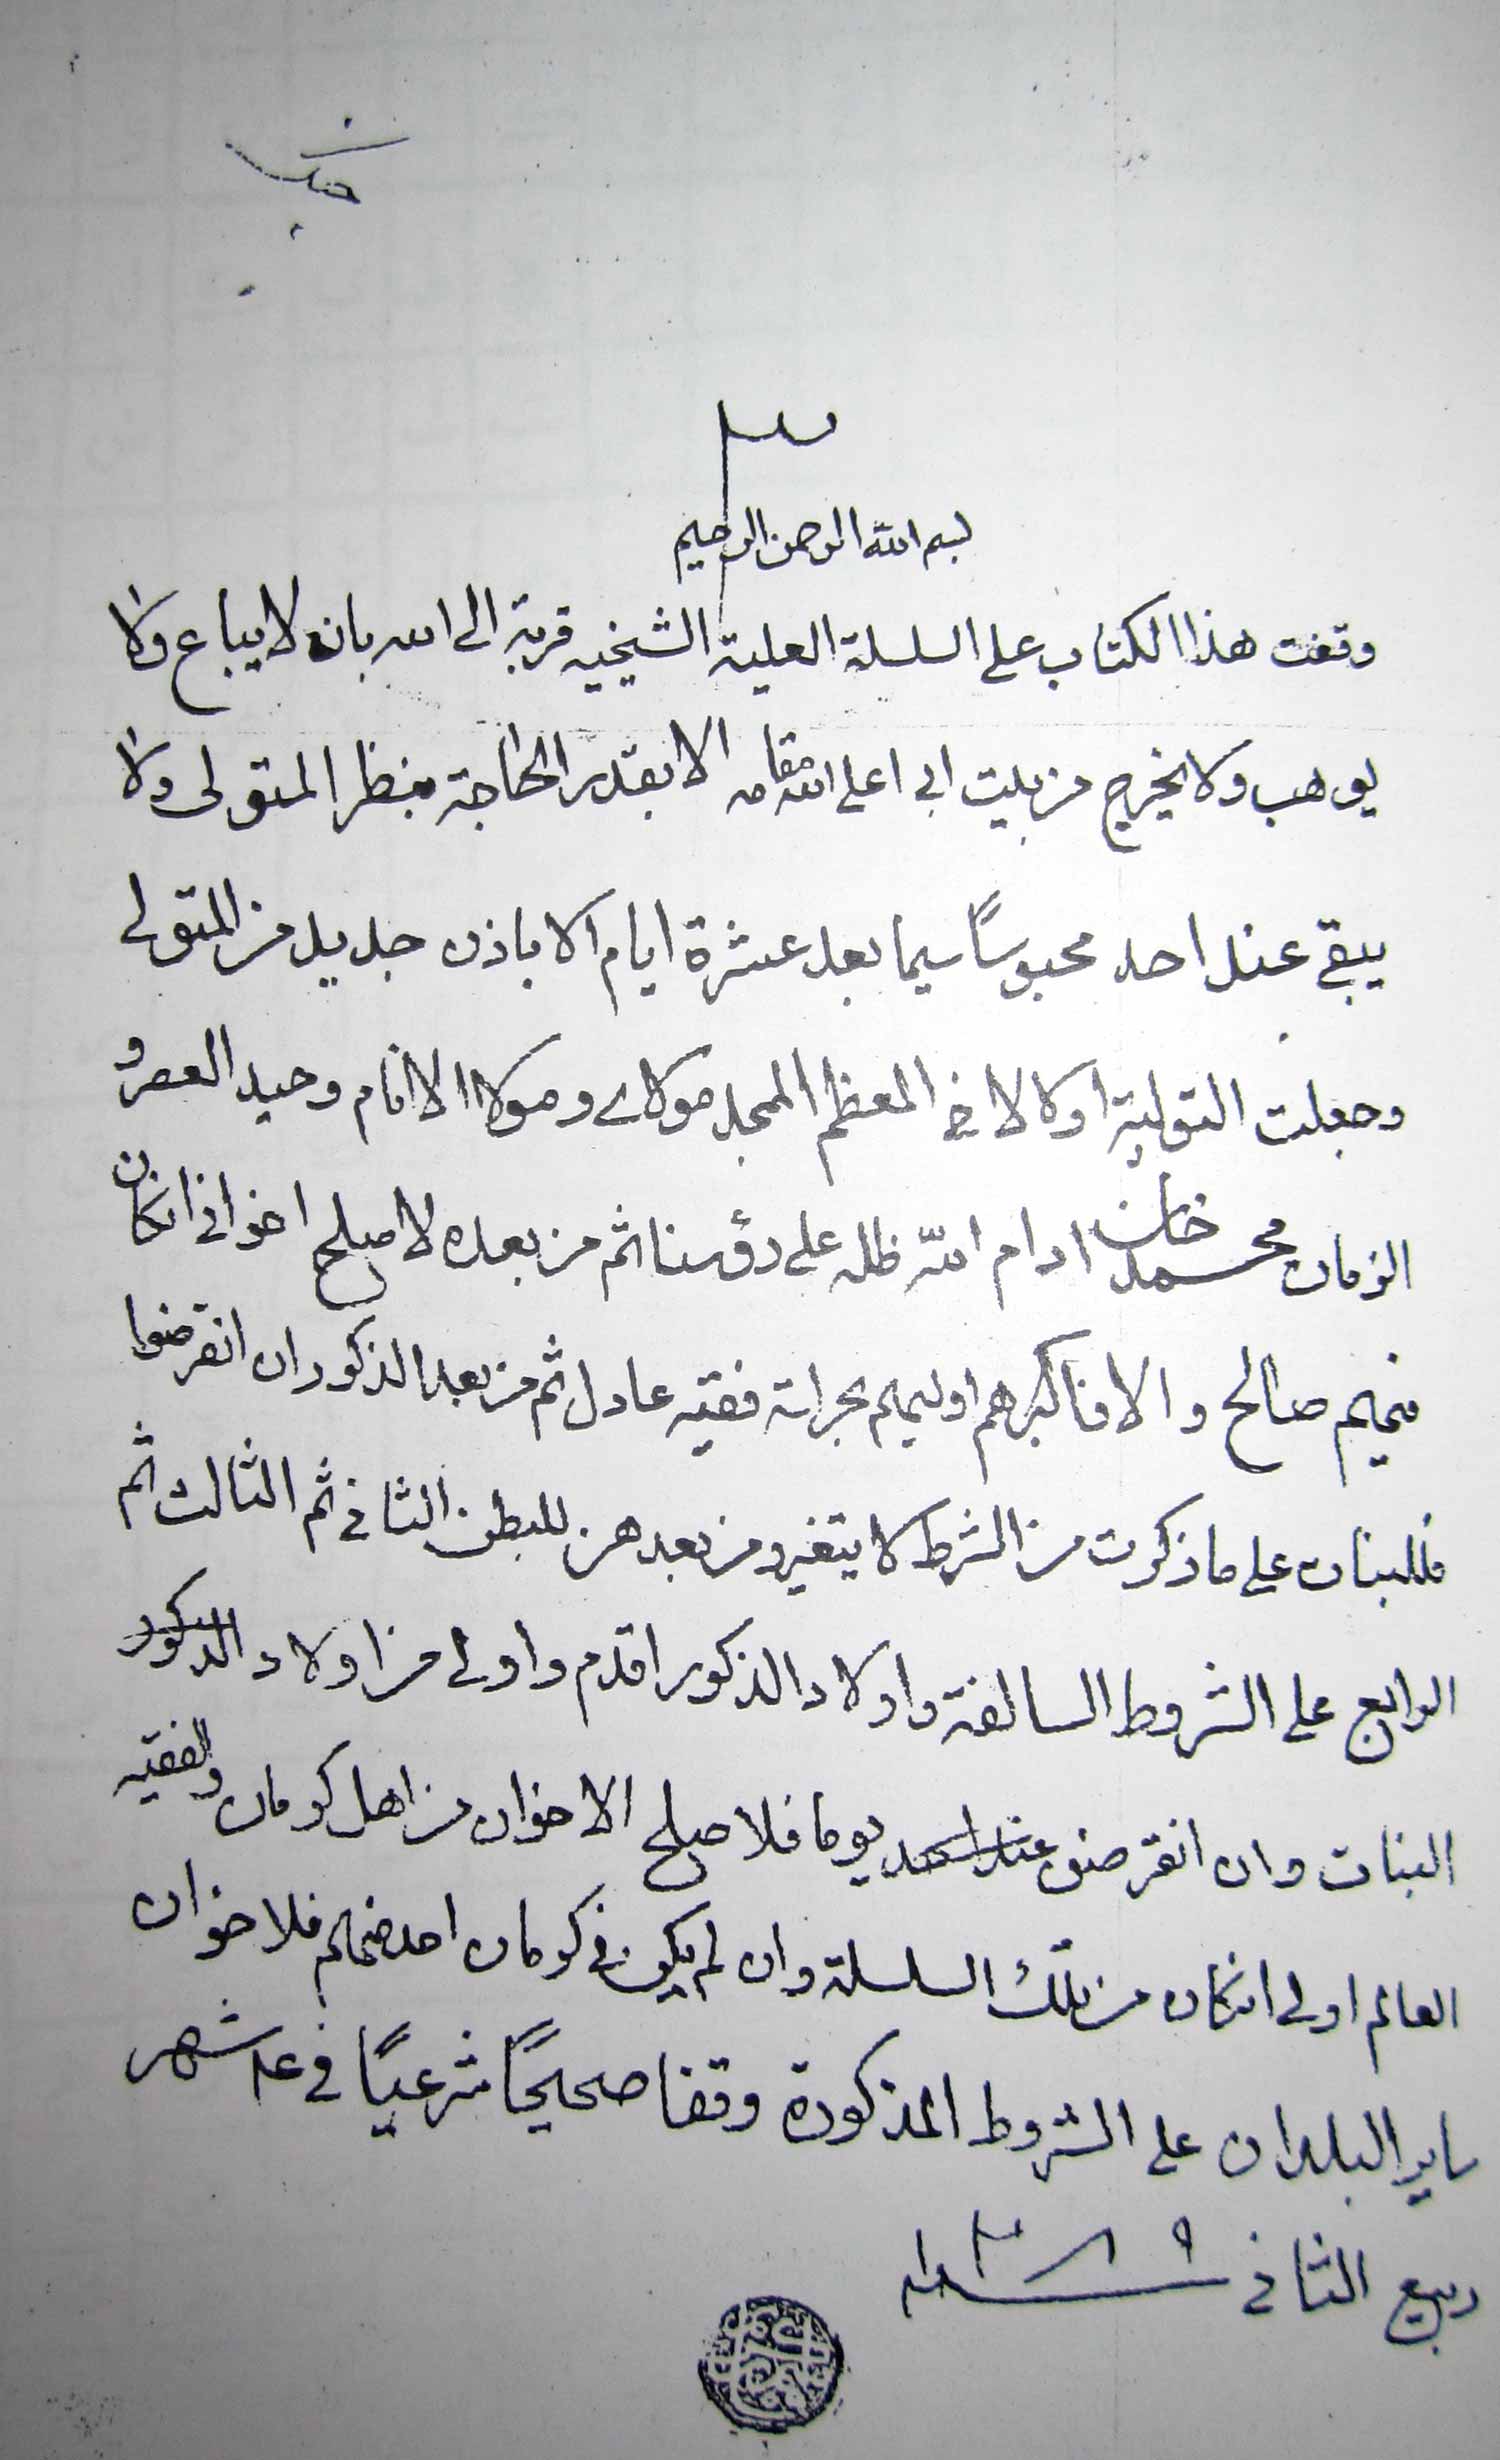 بسم الله الرحمن الرحيم
وقفت هذا الكتاب على السلسلة العلية الشيخيه قربة الى الله بان لا يباع ولا
يوهب ولا يخرج من بيت ابى اعلى الله مقامه الا بقدر الحاجة بنظر المتولى ولا
يبقى عند احد محبوسًا سيما بعد عشرة ايام الا باذن جديد من المتولى
وجعلت التولية اولا لاخى المعظم الممجد مولاى ومولا الانام وحيد العصر و
الزمان محمد خان ادام الله ظله على رؤسنا ثم من بعده لاصلح اخوانى انكان
فيهم صالح والا فاكبرهم اوليهم بحراسة فقيه عادل ثم من بعد الذكور ان انقرضوا
فللبنات على ما ذكرت من الشرط لا يتغير ومن بعدهن للبطن الثانى ثم الثالث ثم
الرابع على الشروط السالفة واولاد الذكور اقدم واولى من اولاد الذكور
البنات وان انقرضوا عند احد يوما فلاصلح الاخوان من اهل كرمان والفقيه
العالم اولى انكان من تلك السلسلة وان لم يكن فى كرمان احد منهم فلاخوان
ساير البلدان على الشروط المذكورة وقفا صحيحًا شرعيًا فى شهر
ربيع الثانى